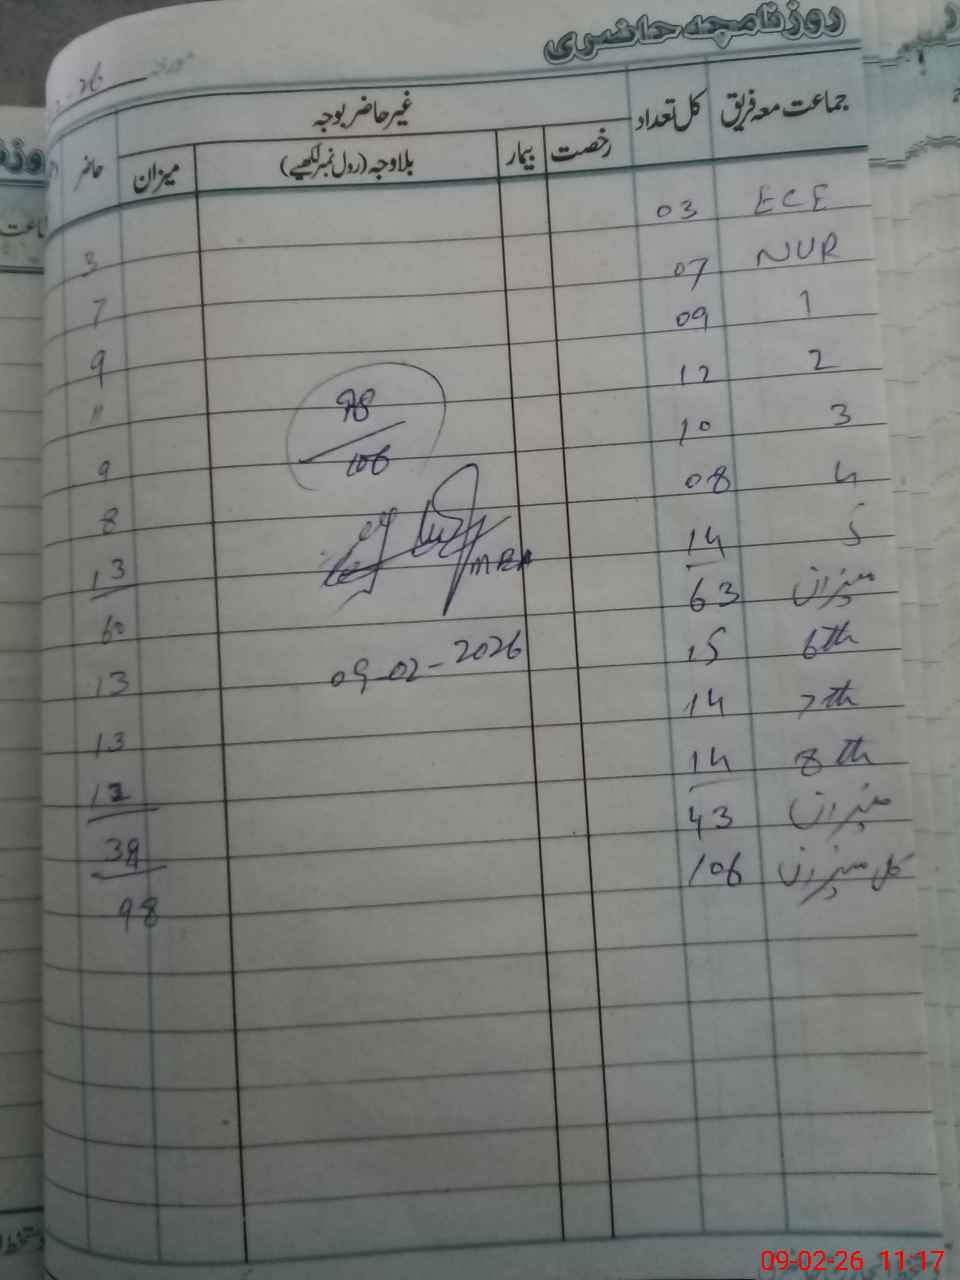 روزنامچہ حاضری
جماعت معہ فریق کل تعداد غیر حاضر بوجہ حاضر
رخصت بیمار بلاوجہ (رول نمبر لکھیے) میزان
ECE 03 3
NUR 07 7
1 09 9
2 12 11
3 10 9
4 08 8
5 14 13
میزان 63 60
6th 15 13
7th 14 13
8th 14 12
میزان 43 38
کل میزان 106 98
98
106
MEA
09-02-2026
09-02-26 11:17